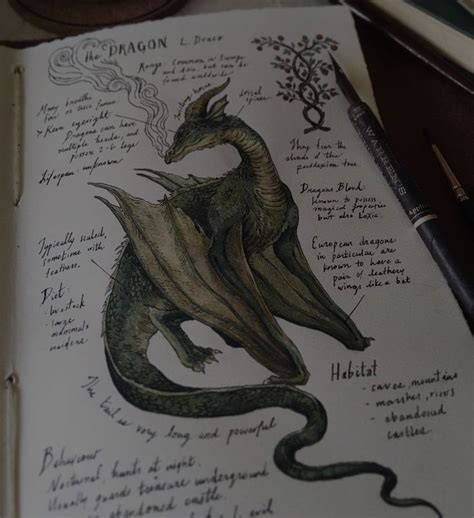 the DRAGON L. Draco
Range Common in Europe
and Asia but can be
found worldwide
Many breathe
fire or toxic fumes
Keen eyesight
Dragons can have
multiple heads, and
possess 2-6 legs
Lifespan unknown
horns
dorsal
spines
They fear the
of the
tree.
Dragons Blood:
known to possess
magical properties
but also toxic.
European dragons
in particular are
known to have a
pair of leathery
wings like a bat
Typically scaled,
sometimes with
feathers.
Diet:
- livestock
- large
mammals
- maidens
The tail is very long and powerful
Habitat
- caves, mountains
- marshes, rivers
- abandoned
castles.
Behaviour
Nocturnal, hunts at night.
Usually guards treasure underground
abandoned castle.
evil